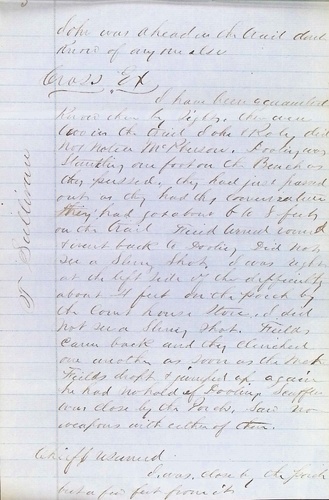 John was ahead on the trail dont
know of any one else
Cross Ex
I have been acquainted
know them by sight. they were
two in the trail John & Roly did
not notice McPherson. Dooley was
standing one foot on the Bench as
they passed. they had just passed
out as they had the conversation
they had got about 6 to 8 feet
on the trail Fields turned round
& went back to Dooley Did not
see a Slung Shot I was right
at the left side of the difficulty
about 4 feet on the Porch by
the Court house Store, I did
not see a Slung Shot. Fields
came back and they clinched
one another as soon as the
Fields dropt & jumped up again
he had no hold of Dooling Scuffle
was close by the Porch. Saw no
weapons with either of them.
Chief resumed.
I was close by the porch
but a few feet from it
Sullivan